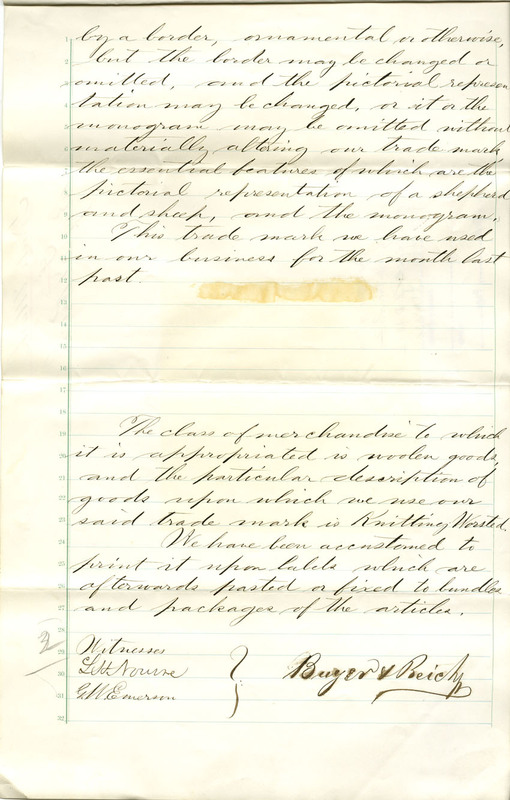 by a border, ornamental or otherwise,
but the border may be changed or
omitted, and the pictorial represen
tation may be changed, or it or the
monogram may be omitted without
materially altering our trade mark
the essential features of which are the
pictorial representation of a shepherd
and sheep, and the monogram.
This trade mark we have used
in our business for the month last
past.
The class of merchandise to which
it is appropriated is woolen goods,
and the particular description of
goods upon which we use our
said trade mark is Knitting Worsted.
We have been accustomed to
print it upon labels which are
afterwards pasted or fixed to bundles
and packages of the articles.
2
Witnesses
Nourse
G.W. Emerson
& Reich